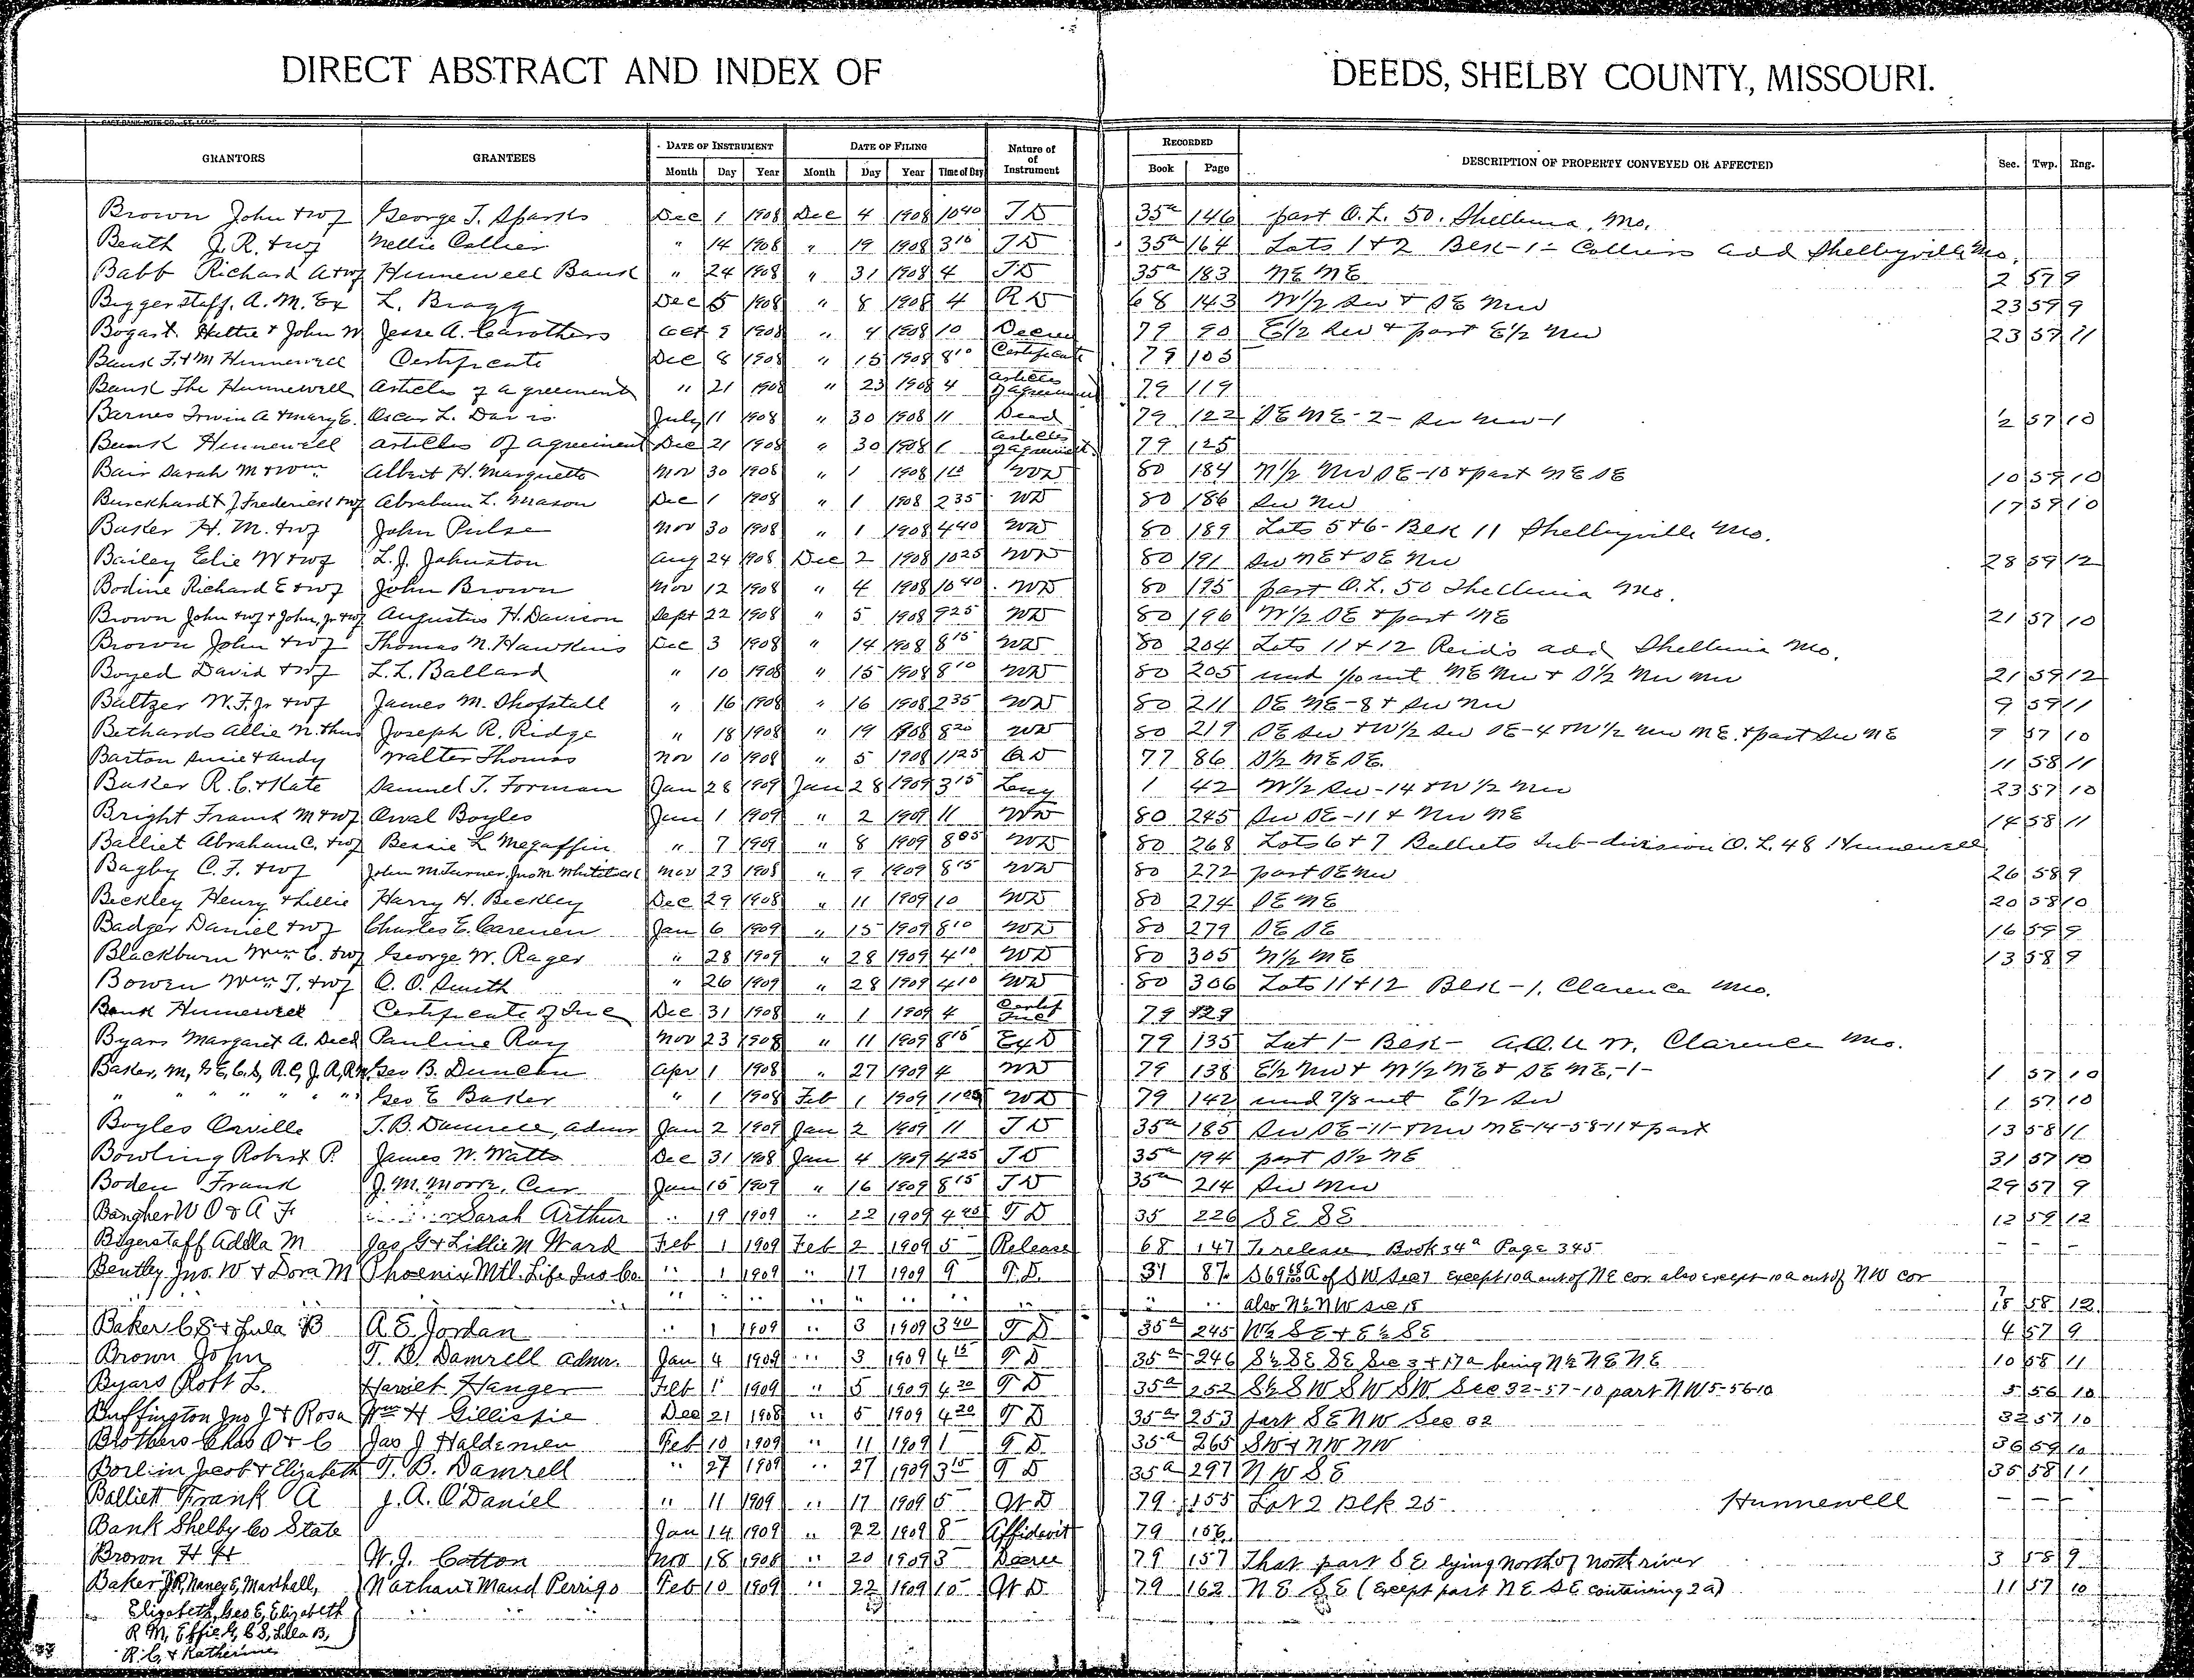 DIRECT ABSTRACT AND INDEX OF DEEDS, SHELBY COUNTY, MISSOURI.
GRANTORS GRANTEES DATE OF INSTRUMENT DATE OF FILING Nature of of Instrument RECORDED DESCRIPTION OF PROPERTY CONVEYED OR AFFECTED Sec. Twp. Rng.
Month Day Year Month Day Year Time of Day Book Page
Brown John + wf George T. Sparks Dec 1 1908 Dec 4 1908 10 40 T D 35a 146 part O.L. 50. Shelbina, Mo.
Beath J. R. + wf Nellie Collier " 14 1908 " 19 1908 3 10 T D 35a 164 Lots 1 + 2 Blk - 1 - Colliers add Shelbyville Mo.
Babb Richard A + wf Hunnewell Bank " 24 1908 " 31 1908 4 T D 35a 183 NE NE 2 57 9
Biggerstaff, A. M. Ex L. Bragg Dec 5 1908 " 8 1908 4 R D 68 143 W 1/2 SW + SE NW 23 59 9
Bogart. Hettie + John W Jesse A. Carothers Oct 9 1908 " 4 1908 10 Decree 79 90 E 1/2 SW + part E 1/2 NW 23 57 11
Bank F. + M Hunnewell Certificate Dec 8 1908 " 15 1908 8 10 Certificate 79 105
Bank The Hunnewell Articles of agreement " 21 1908 " 23 1908 4 Articles of agreement 79 119
Barnes Irwin A + Mary E. Oscar L. Davis July 11 1908 " 30 1908 11 Deed 79 122 SE NE - 2 - SW NW - 1 1/2 57 10
Bank Hunnewell articles of agreement Dec 21 1908 " 30 1908 1 Articles of agreement 79 125
Bair Sarah M + Wm Albert H. Marquette Nov 30 1908 " 1 1908 WD 80 184 N 1/2 NW SE - 10 + part NE SE 10 59 10
Burckhardt J Frederick + wf Abraham L. Mason Dec 1 1908 " 1 1908 2 35 WD 80 186 SW NW 17 59 10
Baker H. M. + wf John Pulse Nov 30 1908 " 1 1908 4 40 WD 80 189 Lots 5 + 6 - Blk 11 Shelbyville Mo.
Bailey Elie W + wf L. J. Johnston Aug 24 1908 Dec 2 1908 10 25 WD 80 191 SW NE + SE NW 28 59 12
Bodine Richard E + wf John Brown Nov 12 1908 " 4 1908 10 40 WD 80 195 part O.L. 50 Shelbina Mo.
Brown John + wf + John, Jr + wf Augustus H. Davison Sept 22 1908 " 5 1908 9 25 WD 80 196 W 1/2 SE + part NE 21 57 10
Brown John + wf Thomas N. Hawkins Dec 3 1908 " 14 1908 8 15 WD 80 204 Lots 11 + 12 Reid's add Shelbina Mo.
Boyed David + wf L. L. Ballard " 10 1908 " 15 1908 8 10 WD 80 205 und 1/10 int NE NW + S 1/2 NW NW 21 59 12
Baltzer W. F. Jr + wf James M. Shofstall " 16 1908 " 16 1908 2 35 WD 80 211 SE NE - 8 + SW NW 9 59 11
Bethards Allie N. + hus Joseph R. Ridge " 18 1908 " 19 1908 8 20 WD 80 219 SE SW + W 1/2 SW SE - 4 + W 1/2 NW NE. + part SW NE 9 57 10
Barton Susie + Andy Walter Thomas Nov 10 1908 " 5 1908 11 25 Q D 77 86 S 1/2 NE SE. 11 58 11
Baker R. C. + Kate Samuel T. Forman Jan 28 1909 Jan 28 1909 3 15 Levy 1 42 W 1/2 SW - 14 + W 1/2 NW 23 57 10
Bright Frank M + wf Orval Boyles Jan 1 1909 " 2 1909 11 WD 80 245 SW SE - 11 + NW NE 14 58 11
Balliet Abraham C. + wf Bessie L Megaffin " 7 1909 " 8 1909 8 05 WD 80 268 Lots 6 + 7 Balliets Sub-division O.L. 48 Hunnewell
Bagby C. F. + wf John M Turner, Jno M Nov 23 1908 " 9 1909 8 15 WD 80 272 part SE NW 26 58 9
Beckley Henry + Lillie Harry H. Beckley Dec 29 1908 " 11 1909 10 WD 80 274 SE NE 20 58 10
Badger Daniel + wf Charles E. Jan 6 1909 " 15 1909 8 10 WD 80 279 SE SE 16 59 9
Blackburn Wm C. + wf George W. Rager " 28 1909 " 28 1909 4 10 WD 80 305 N 1/2 NE 13 58 9
Bowen Wm T. + wf O. O. Smith " 26 1909 " 28 1909 4 10 WD 80 306 Lots 11 + 12 Blk - 1, Clarence Mo.
Bank Hunnewell Certificate of Inc Dec 31 1908 " 1 1909 4 79 129
Byars Margaret A. Decd Pauline Ray Nov 23 1908 " 11 1909 8 15 Ex D 79 135 Lot 1 - Blk - A.O.U.W. Clarence Mo.
Baker, M, G E, C S, R C, J. R, R M, Geo B. Duncan Apr 1 1908 " 27 1909 4 WD 79 138 E 1/2 NW + W 1/2 NE + SE NE. - 1 - 1 57 10
" " " " " " " Geo E Baker " 1 1908 Feb 1 1909 11 05 WD 79 142 und 7/8 int E 1/2 SW 1 57 10
Boyles Orville T. B. Damrell, admr Jan 2 1909 Jan 2 1909 11 T D 35a 185 SW SE - 11 - + NW NE - 14 - 58 - 11 + part 13 58 11
Bowling Robert P. James W. Watts Dec 31 1908 Jan 4 1909 4 25 T D 35a 194 part S 1/2 NE 31 57 10
Boden Frank J. M. Moore, Cur Jan 15 1909 " 16 1909 8 15 T D 35a 214 SW NW 29 57 9
Bangher W O & A F. " " " Sarah Arthur " 19 1909 " 22 1909 4 25 T D 35 226 SE SE 12 59 12
Bigerstaff Addla M Jas G + Lillie M Ward Feb 1 1909 Feb 2 1909 5 Release 68 147 To release Book 34a Page 345 - - -
Bentley Jno. W + Dora M Phoenix Mtl. Life Ins Co. " 1 1909 " 17 1909 9 T.D. 31 87 S 69 68/100 A of SW Sec 7 Except 10a out of NE cor. also except 10a out of NW cor 7
" " " " " " " " " " " " " also N 1/2 NW Sec 18 18 58 12
Baker C S + Lula B A E Jordan " 1 1909 " 3 1909 3 40 T D 35a 245 W 1/2 SE + E 1/2 SE 4 57 9
Brown John T. B. Damrell admr. Jan 4 1909 " 3 1909 4 15 T D 35a 246 S 1/2 SE SE Sec 3 + 17a being N 1/2 NE NE 10 58 11
Byars Robt L. Harriet Hanger Feb 1 1909 " 5 1909 4 20 T D 35a 252 S 1/2 SW SW SW Sec 32-57-10 part NW 5-56-10 5 56 10
Buffington Jno J + Rosa Wm H Gillispie Dec 21 1908 " 5 1909 4 20 T D 35a 253 part SE NW Sec 32 32 57 10
Brothers Chas O + C Jas J Haldemen Feb 10 1909 " 11 1909 1 T D 35a 265 SW + NW NW 36 59 10
Borlin Jacob + Elizabeth T. B. Damrell " 27 1909 " 27 1909 3 15 T D 35a 297 NW SE 35 58 11
Balliett Frank A J. A. O'Daniel " 11 1909 " 17 1909 5 W D 79 155 Lot 2 Blk 25 Hunnewell - - -
Bank Shelby Co State Jan 14 1909 " 22 1909 8 Affidavit 79 156
Brown H H W. J. Cotton Nov 18 1908 " 20 1909 3 Decree 79 157 That part SE lying north of north river 3 58 9
Baker J R, Nancy E, Marshall, Nathan + Maud Perrigo Feb 10 1909 " 22 1909 10 W D 79 162 NE SE (Except part NE SE containing 2a) 11 57 10
Elizabeth, Geo E, Elizabeth " " "
R M, Effie G, C S, Lula B,
R. C. + Katherine